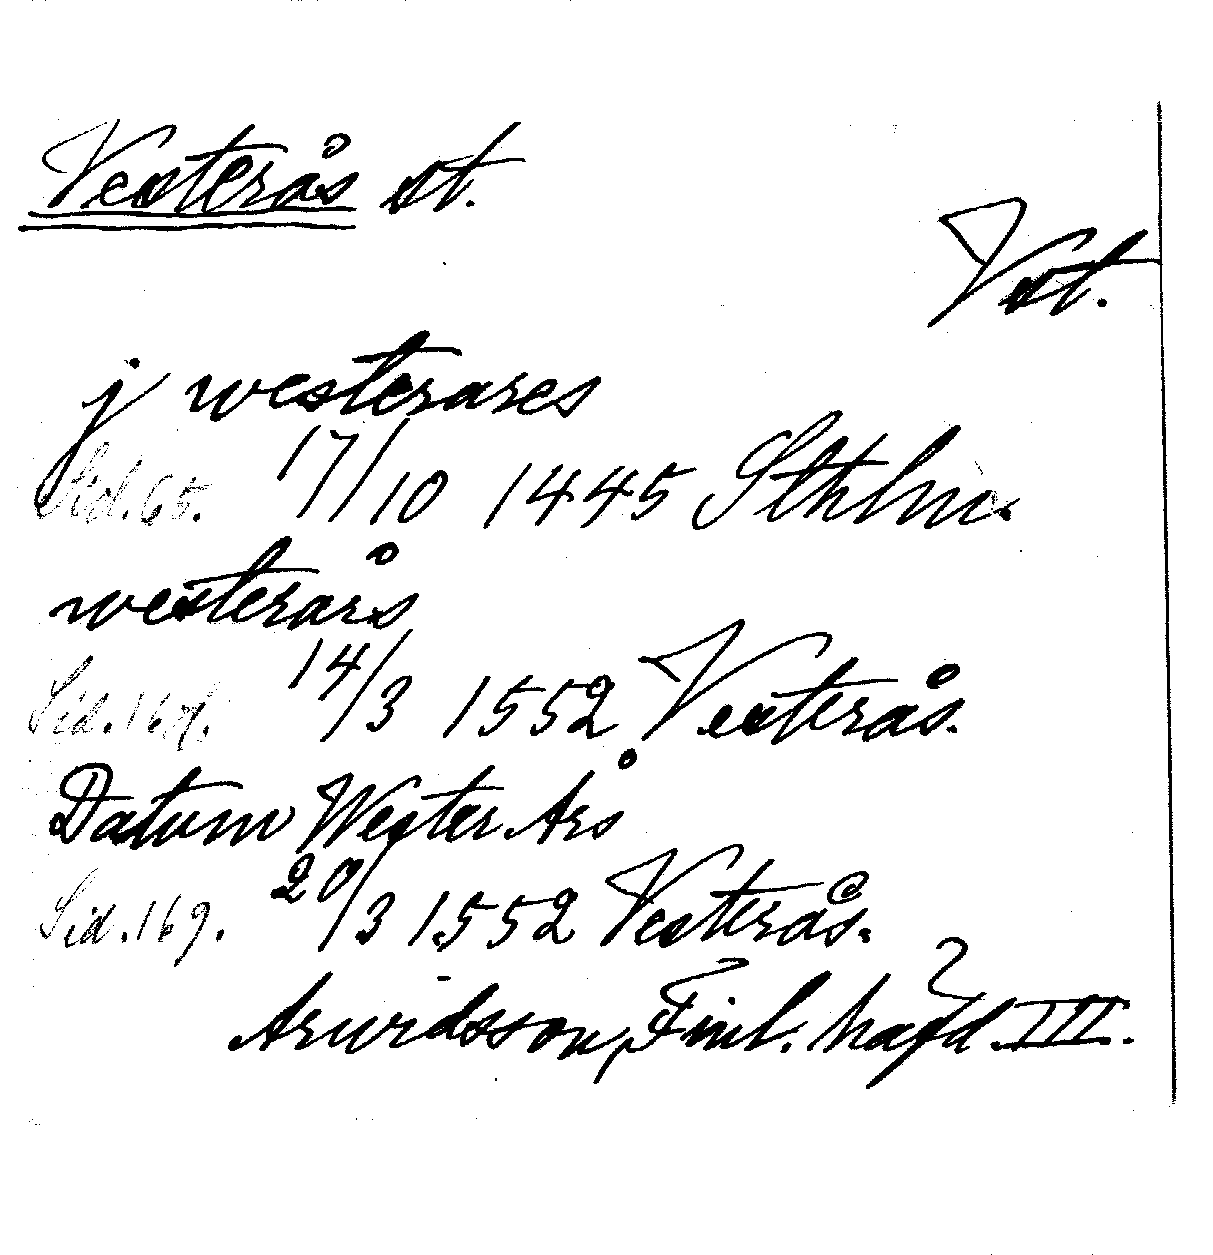 Vesterås st.
Vst.
j westerares
Sid. 65. 17/10 1445 Sthlm.
westerårs
Sid. 167. 14/3 1552 Vesterås.
Datum Wester Års
Sid. 169. 20/3 1552 Vesterås.
Arwidsson, Finl. häfd. III.